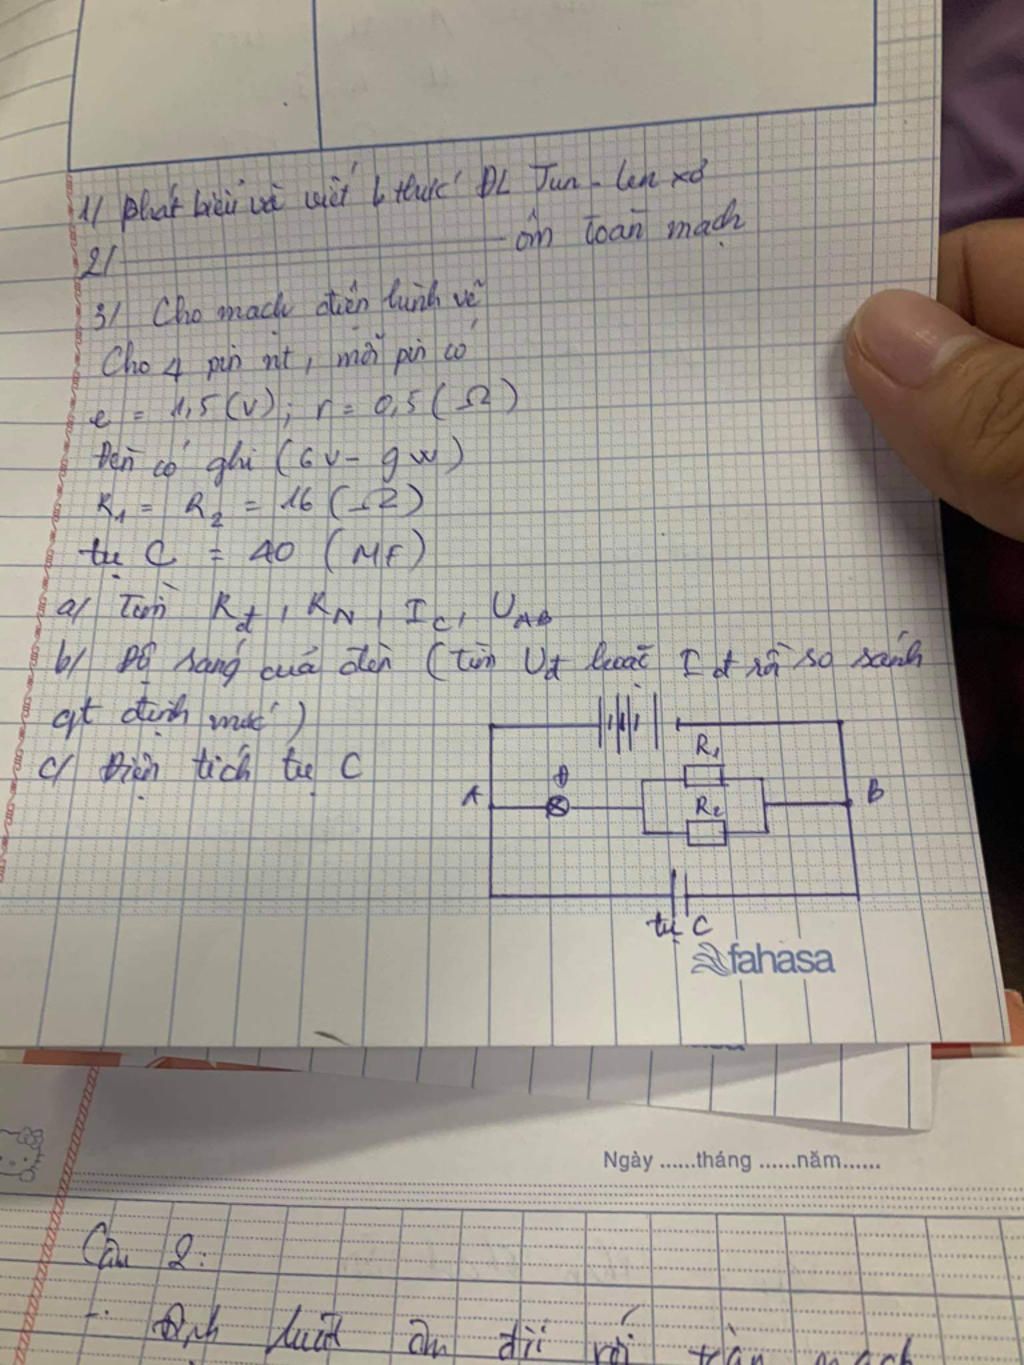 1/ Phát biểu và viết b thức ĐL Jun - len xơ
2/ ——— ôm toàn mạch
3/ Cho mạch điện hình vẽ
Cho 4 pin nt, mỗi pin có
e = 1,5 (V); r = 0,5 (Ω)
Đèn có ghi (6V - 9W)
R1 = R2 = 16 (Ω)
tụ C = 40 (MF)
a/ Tìm Rđ, RN, IC, UAB
b/ Độ sáng của đèn (tìm Uđ hoặc Iđ rồi so sánh
gt định mức)
c/ Điện tích tụ C
R1
Đ
A
B
R2
tụ C
fahasa
Ngày ......tháng ......năm......
Câu 2:
- Định luật ôm đối với toàn mạch